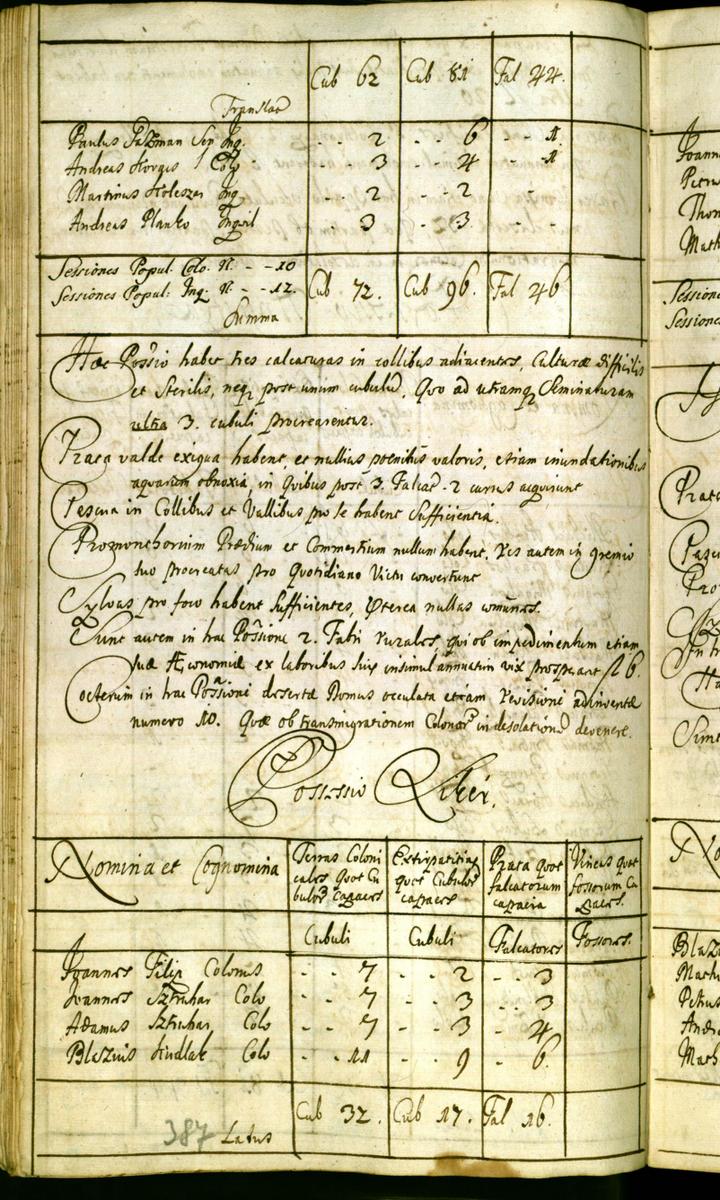 Cub 62 Cub 81 Fal 44.
Translat
Paulus Pazman Sen Inq. - - 2 - - 6 - - 1.
Andreas Korgis Colo - - 3 - - 4 - - 1
Martinus Holeszar Inq - - 2 - - 2 -
Andreas Planko Inquil - 3 - - 3 - -
Sessiones Popul. Colo. N. - - 10
Sessiones Popul. Inq. N. - - 12. Cub 72. Cub 96. Fal 46
Summa
Hæc Poss̃io habet tres calcaturas in collibus adiacentes, Culturæ difficilis
et Sterilis, neq post unum cubulũ, Quo ad utramq Seminaturam
ultra 3. cubuli procrearentur.
Prata valde exigua habent, et nullius poenitus valoris, etiam inundationibus
aquarum obnoxia, in quibus post 3. Falcat. 2 currus acquirunt
Pascua in Collibus et Vallibus pro se habent Sufficientia.
Promonthorium Prædium et Commertium nullum habent. Res autem in gremio
suo procreatas pro Quotidiano Victu convertunt
Sylvas pro foco habent Sufficientes, Pterea nullas com̃unes.
Sunt autem in hac Poss̃ione 2. Fabri rurales, qui ob impedimentum etiam
suæ Æconomiæ ex laboribus suis insimul annuatim vix prosperant fl 6.
Cæterum in hac Poss̃ioni desertæ Domus occulata etiam Revisioni adinventæ
numero 10. Quæ ob transmigrationem Colonor in desolationẽ devenere.
Possessio
Nomina et Cognomina Terras Coloni Extirpatitias Prata quot Vineas quot
cales Quot Cu quot Cubulor̃ falcatorum fossorum Ca
bulor̃ capaces capaces capacia paces.
Cubuli Cubuli Falcatores Fossores.
Joannes Filip Colonus - - 7 - - 2 - - 3
Joannes Sztruhar Colo - - 7 - - 3 - - 3
Adamus Sztruhar Colo - - 7 - - 3 - 4
Blazius Hudlak Colo - - 11 - - 9 - 6.
Cub 32. Cub 17. Fal 16.
387 Latus